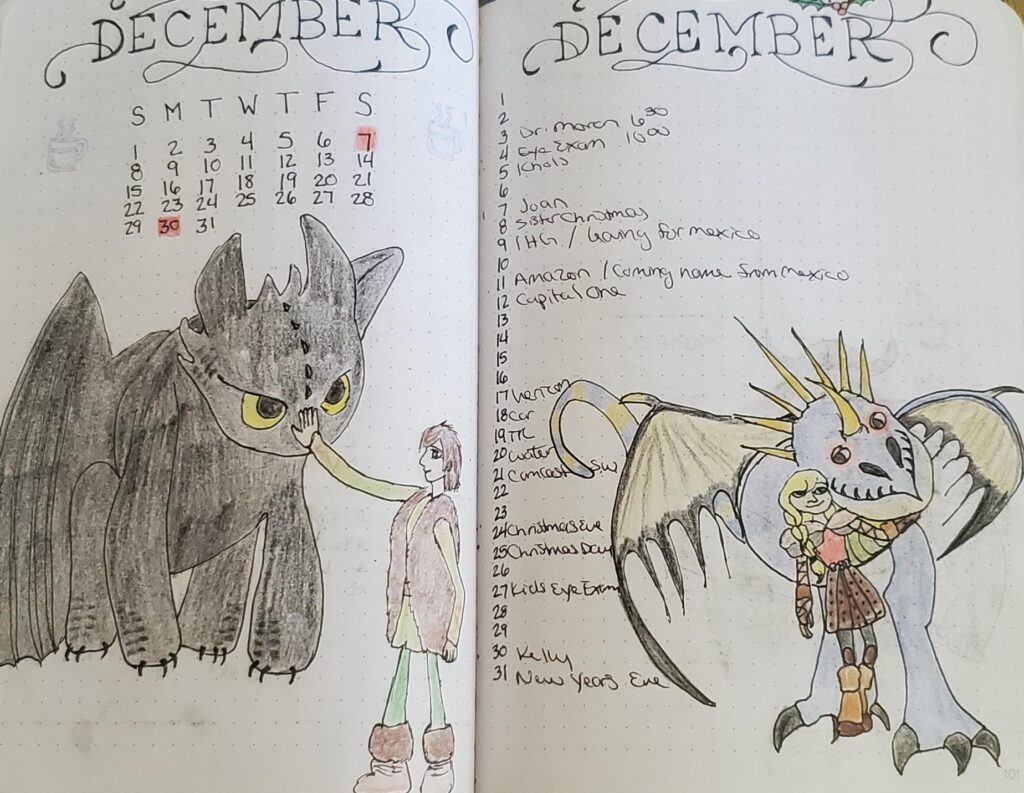 DECEMBER
S M T W T F S
1 2 3 4 5 6 7
8 9 10 11 12 13 14
15 16 17 18 19 20 21
22 23 24 25 26 27 28
29 30 31
DECEMBER
1
2
3 Dr. March 6 30
4 Eye Exam 10 00
5 Khols
6
7 Joan
8 Sister Christmas
9 IHG / leaving for mexico
10
11 Amazon / Coming home from mexico
12 Capital One
13
14
15
16
17 Verizon
18 Car
19 TTL
20 Water
21 Comcast SW
22
23
24 Christmas Eve
25 Christmas Day
26
27 Kids Eye Exam
28
29
30 Kelly
31 New Years Eve
101